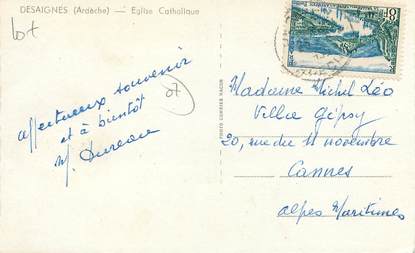 DESAIGNES (Ardèche) — Eglise Catholique
lot
07
affectueux souvenir
et à bientôt
M. Dureau
PHOTO COURRIER NAGON
Madame Michel Léo
Villa Gipsy
20, rue du 11 novembre
Cannes
Alpes Maritimes
8f